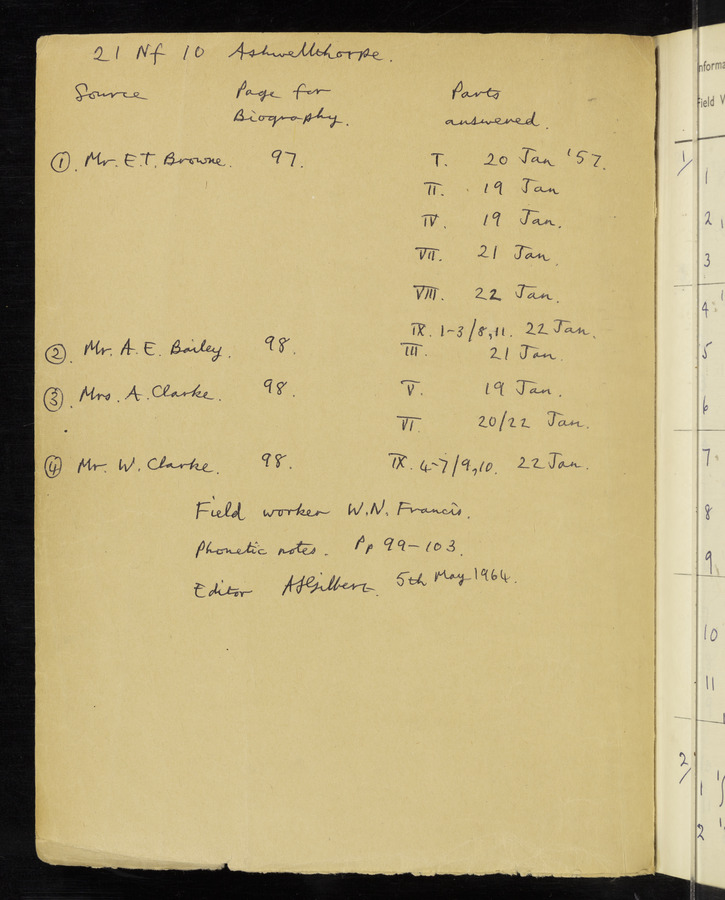 21 Nf 10 Ashwellthorpe.
Source Page for Parts
Biography. answered.
①. Mr. E.T. Browne. 97. I. 20 Jan '57.
II. 19 Jan
IV. 19 Jan.
VII. 21 Jan.
VIII. 22 Jan.
IX. 1-3/8,11. 22 Jan.
②. Mr. A. E. Bailey. 98. III. 21 Jan.
③. Mrs. A. Clarke. 98. V. 19 Jan.
VI. 20/22 Jan.
④ Mr. W. Clarke. 98. IX. 4-7/9,10. 22 Jan.
Field worker W.N. Francis.
Phonetic notes. Pp 99-103.
Editor ASGilbert. 5th May 1964.
nforma
Field W
1/
1
2
3
4
5
6
7
8
9
10
11
2/
1
2